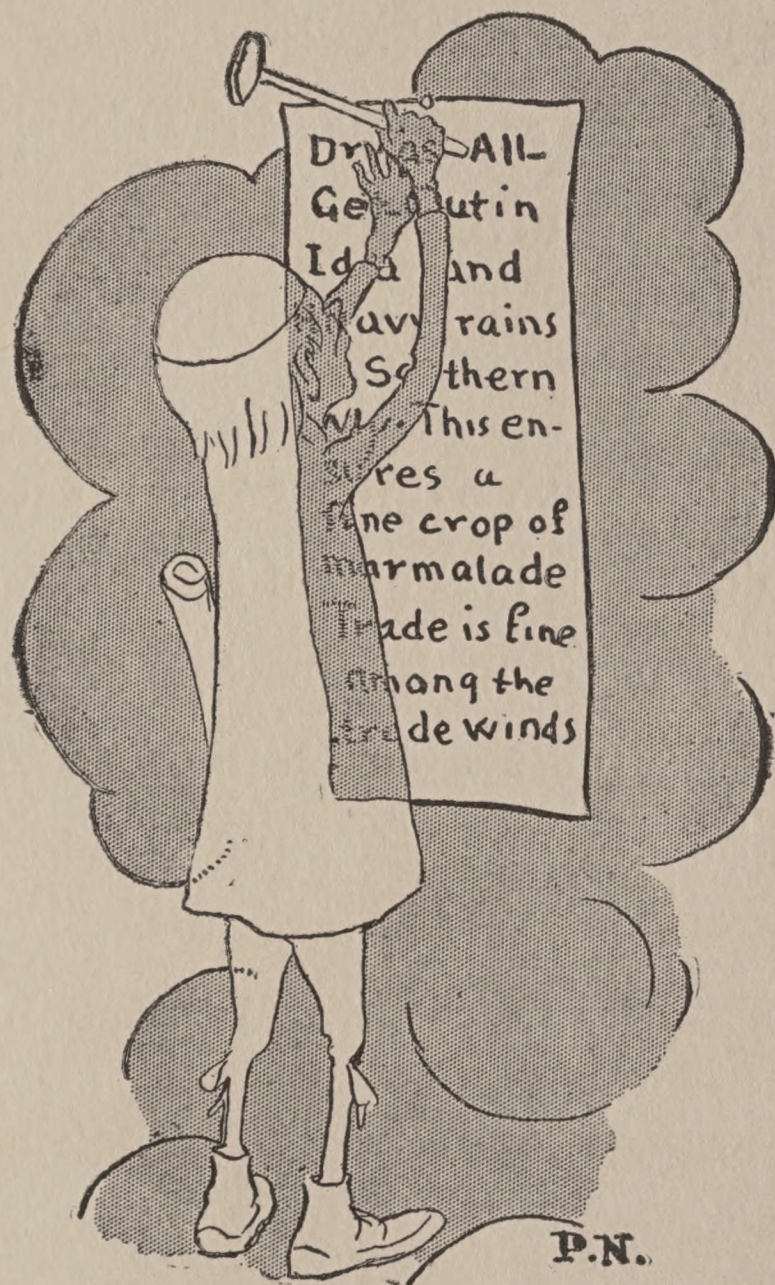 All-
in
and
rains
Southern
This en-
sures a
fine crop of
marmalade
Trade is fine
among the
trade winds
P.N.